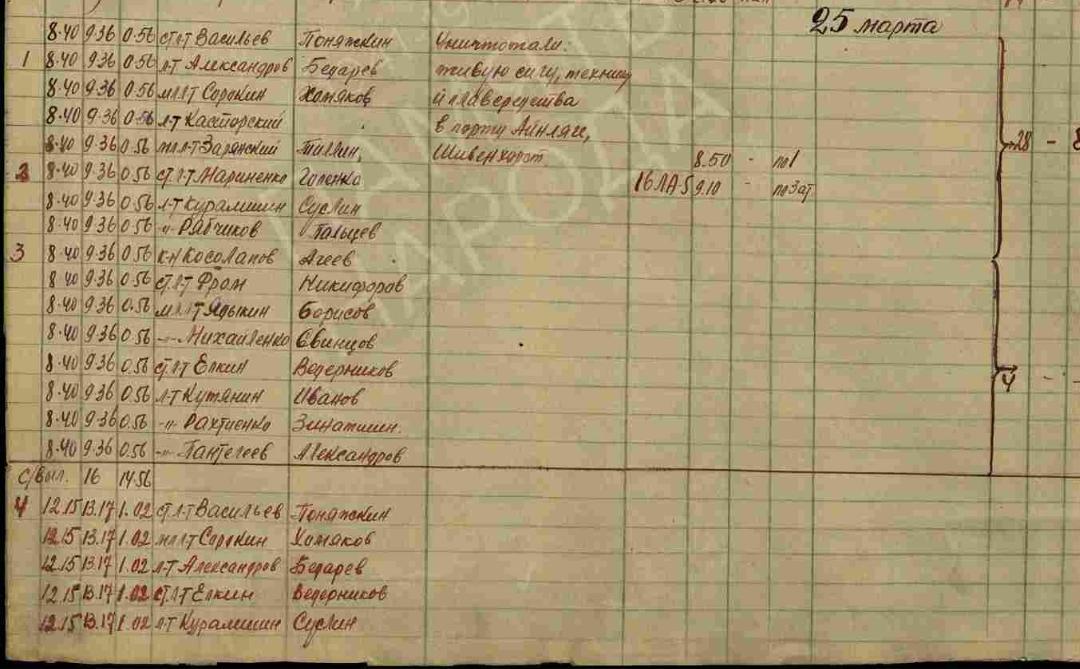 25 марта
8.40 9.36 0.56 ст.л-т Васильев Поняжкин Уничтожали
1 8.40 9.36 0.56 л-т Александров Бедарев живую силу, технику
8.40 9.36 0.56 мл.л-т Сорокин Хомяков и плавсредства
8.40 9.36 0.56 л-т Касторский в порту Айнлаге,
8.40 9.36 0.56 мл.л-т Зарянский Тиллин, Шивенхорст 8.50 - 28 - 8
2 8.40 9.36 0.56 ст.л-т Мариненко Голенко 16 ЛА-5 9.10 -
8.40 9.36 0.56 л-т Курамшин Суслин
8.40 9.36 0.56 -"- Рябчиков Пальцев
3 8.40 9.36 0.56 к-н Косолапов Агеев
8.40 9.36 0.56 ст.л-т Фром Никифоров
8.40 9.36 0.56 мл.л-т Ядыкин Борисов
8.40 9.36 0.56 -"- Михайленко Свинцов
8.40 9.36 0.56 ст.л-т Елкин Ведерников
8.40 9.36 0.56 л-т Кутянин Иванов 4 - -
8.40 9.36 0.56 -"- Рахтиенко
8.40 9.36 0.56 -"- Пантелеев Александров
с/выл. 16 14.56
4 12.15 13.17 1.02 ст.л-т Васильев Поняжкин
12.15 13.17 1.02 мл.л-т Сорокин Хомяков
12.15 13.17 1.02 л-т Александров Бедарев
12.15 13.17 1.02 ст.л-т Елкин Ведерников
12.15 13.17 1.02 л-т Курамшин Суслин